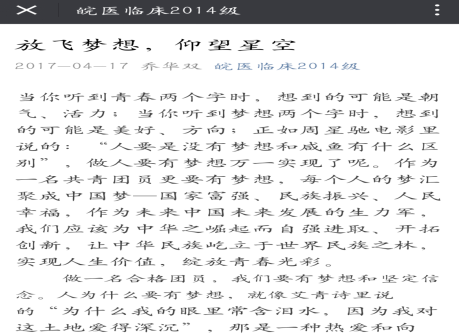 皖医临床2014级
放飞梦想，仰望星空
2017-04-17 乔华双 皖医临床2014级
当你听到青春两个字时，想到的可能是朝
气、活力；当你听到梦想两个字时，想到
的可能是美好、方向；正如周星驰电影里
说的：“人要是没有梦想和咸鱼有什么区
别”，做人要有梦想万一实现了呢。作为
一名共青团员更要有梦想，每个人的梦汇
聚成中国梦—国家富强、民族振兴、人民
幸福，作为未来中国未来发展的生力军，
我们应该为中华之崛起而自强进取、开拓
创新，让中华民族屹立于世界民族之林，
实现人生价值，绽放青春光彩。
做一名合格团员，我们要有梦想和坚定信
念。人为什么要有梦想，就像艾青诗里说
的“为什么我的眼里常含泪水，因为我对
这土地爱得深沉”，那是一种热爱和向